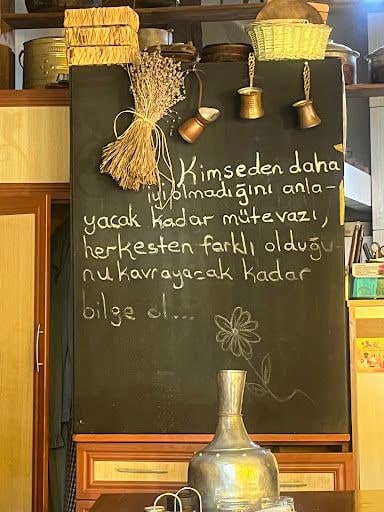 Kimseden daha
iyi olmadığını anla-
yacak kadar mütevazı,
herkesten farklı olduğu
nu kavrayacak kadar
bilge ol...